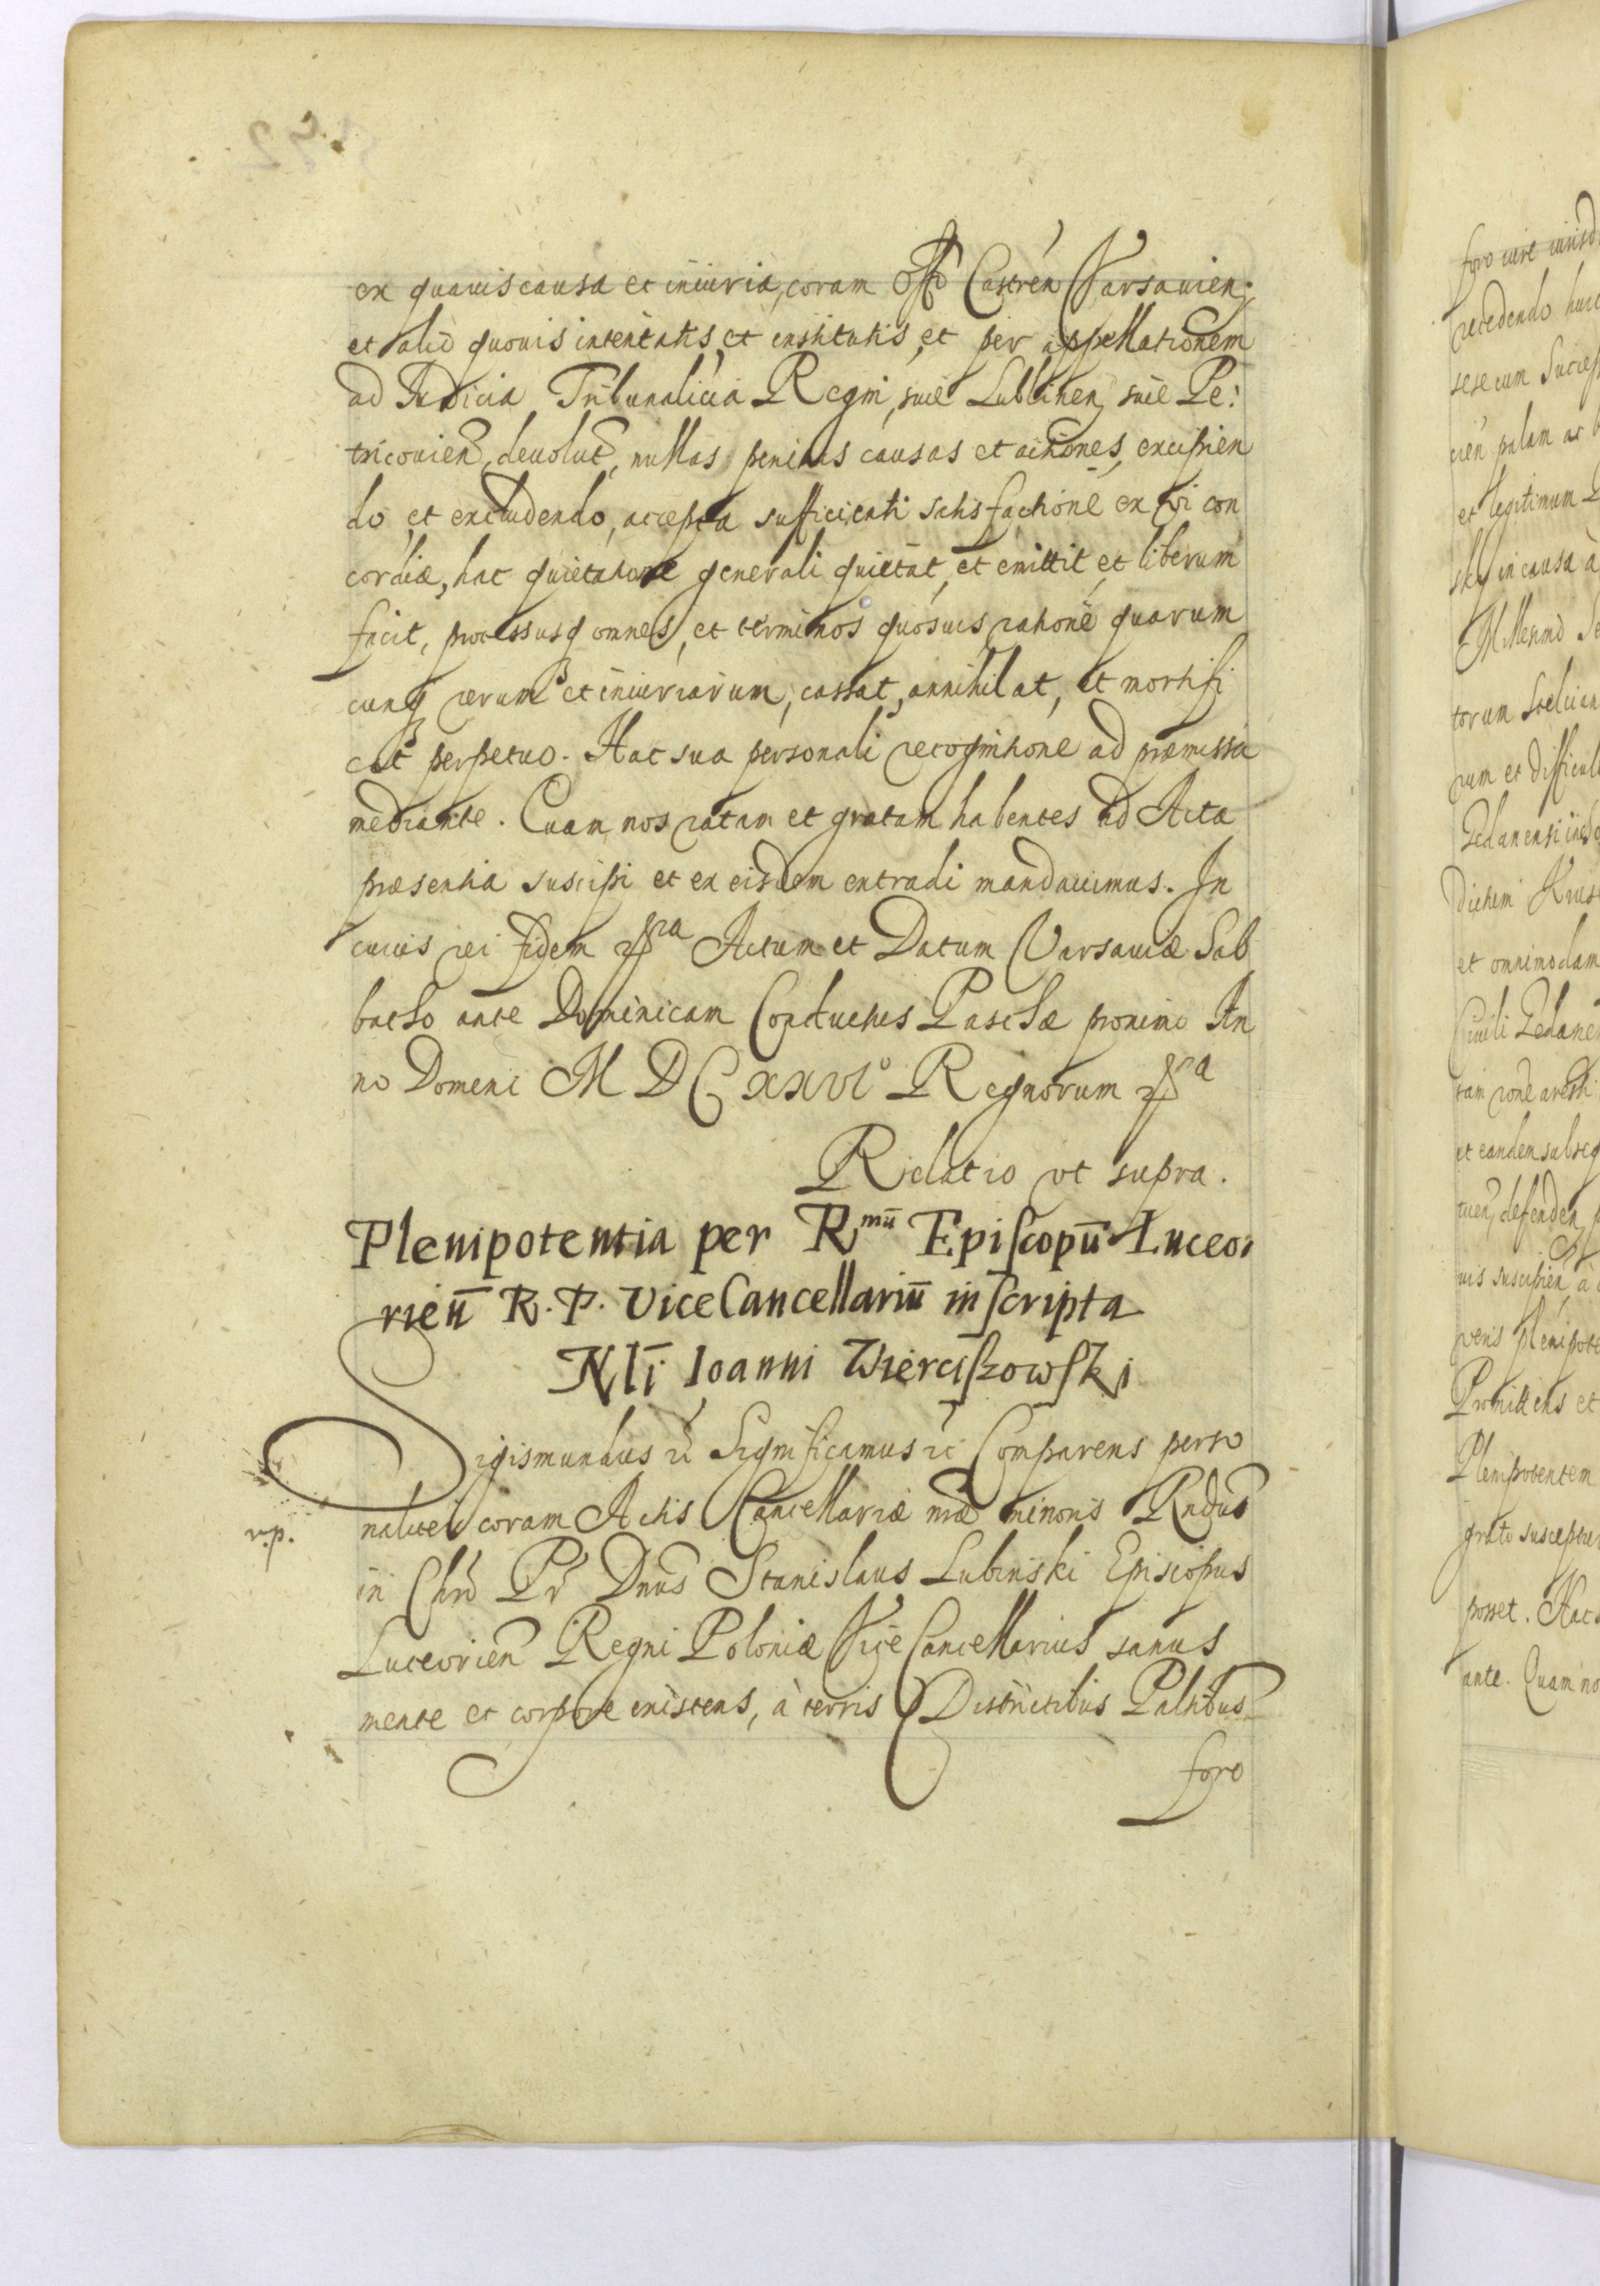 ex quauis causa et iniuria, coram Offo Castren̄ Varsauien̄
et alio quouis intentatis, et institutis, et per appellationem
ad Iudicia Tribunalicia Regni, siue Lublinen̄, siue Pe:
tricouien̄, deuolut̄, nullas penitus causas et actiones, excipien
do, et excludendo, accepta sufficienti satisfactione ex vi con
cordiæ, hac quietatione generali quietat, et emittit, et liberum
facit, processusq omnes, et terminos quosuis, ratione quarum
cunq rerum et iniuriarum, cassat, annihilat, et mortifi
cat perpetuo. Hac sua personali recognitione ad præmissa
mediante. Quam nos ratam et gratam habentes ad Acta
præsentia suscipi et ex eisdem extradi mandauimus. In
cuius rei fidem &ra Actum et Datum Varsauiæ Sab
batho ante Dominicam Conductus Paschæ proximo An
no Domini M D C XXVIo Regnorum &ra
Relatio vt supra.
Plenipotentia per Rmū Episcopū Luceo,
rien̄ R. P. ViceCancellariū inscripta
Nlī Ioanni Wierciszowski
Sigismundus &c Significamus &c Comparens perso
r.p.
naliter coram Actis Cancellariæ nræ minoris Rndus
in Chro Pr Dnus Stanislaus Lubinski Episcopus
Luceorien̄ Regni Poloniæ ViceCancellarius sanus
mente et corpore existens, à terris Districtibus Paltibus
foro
foro iure iurisd
recedendo huic
sese cum Success
cien̄ palam ac
et legitimum
sky in causa à
torum
rum et difficul
et omnimodam
Ciuili Gedanen
et eandem subseq
tuen̄, defenden̄
uis suscipien̄ à
Promittens et
Plenipotentem
posset. Hac
ante. Quam no